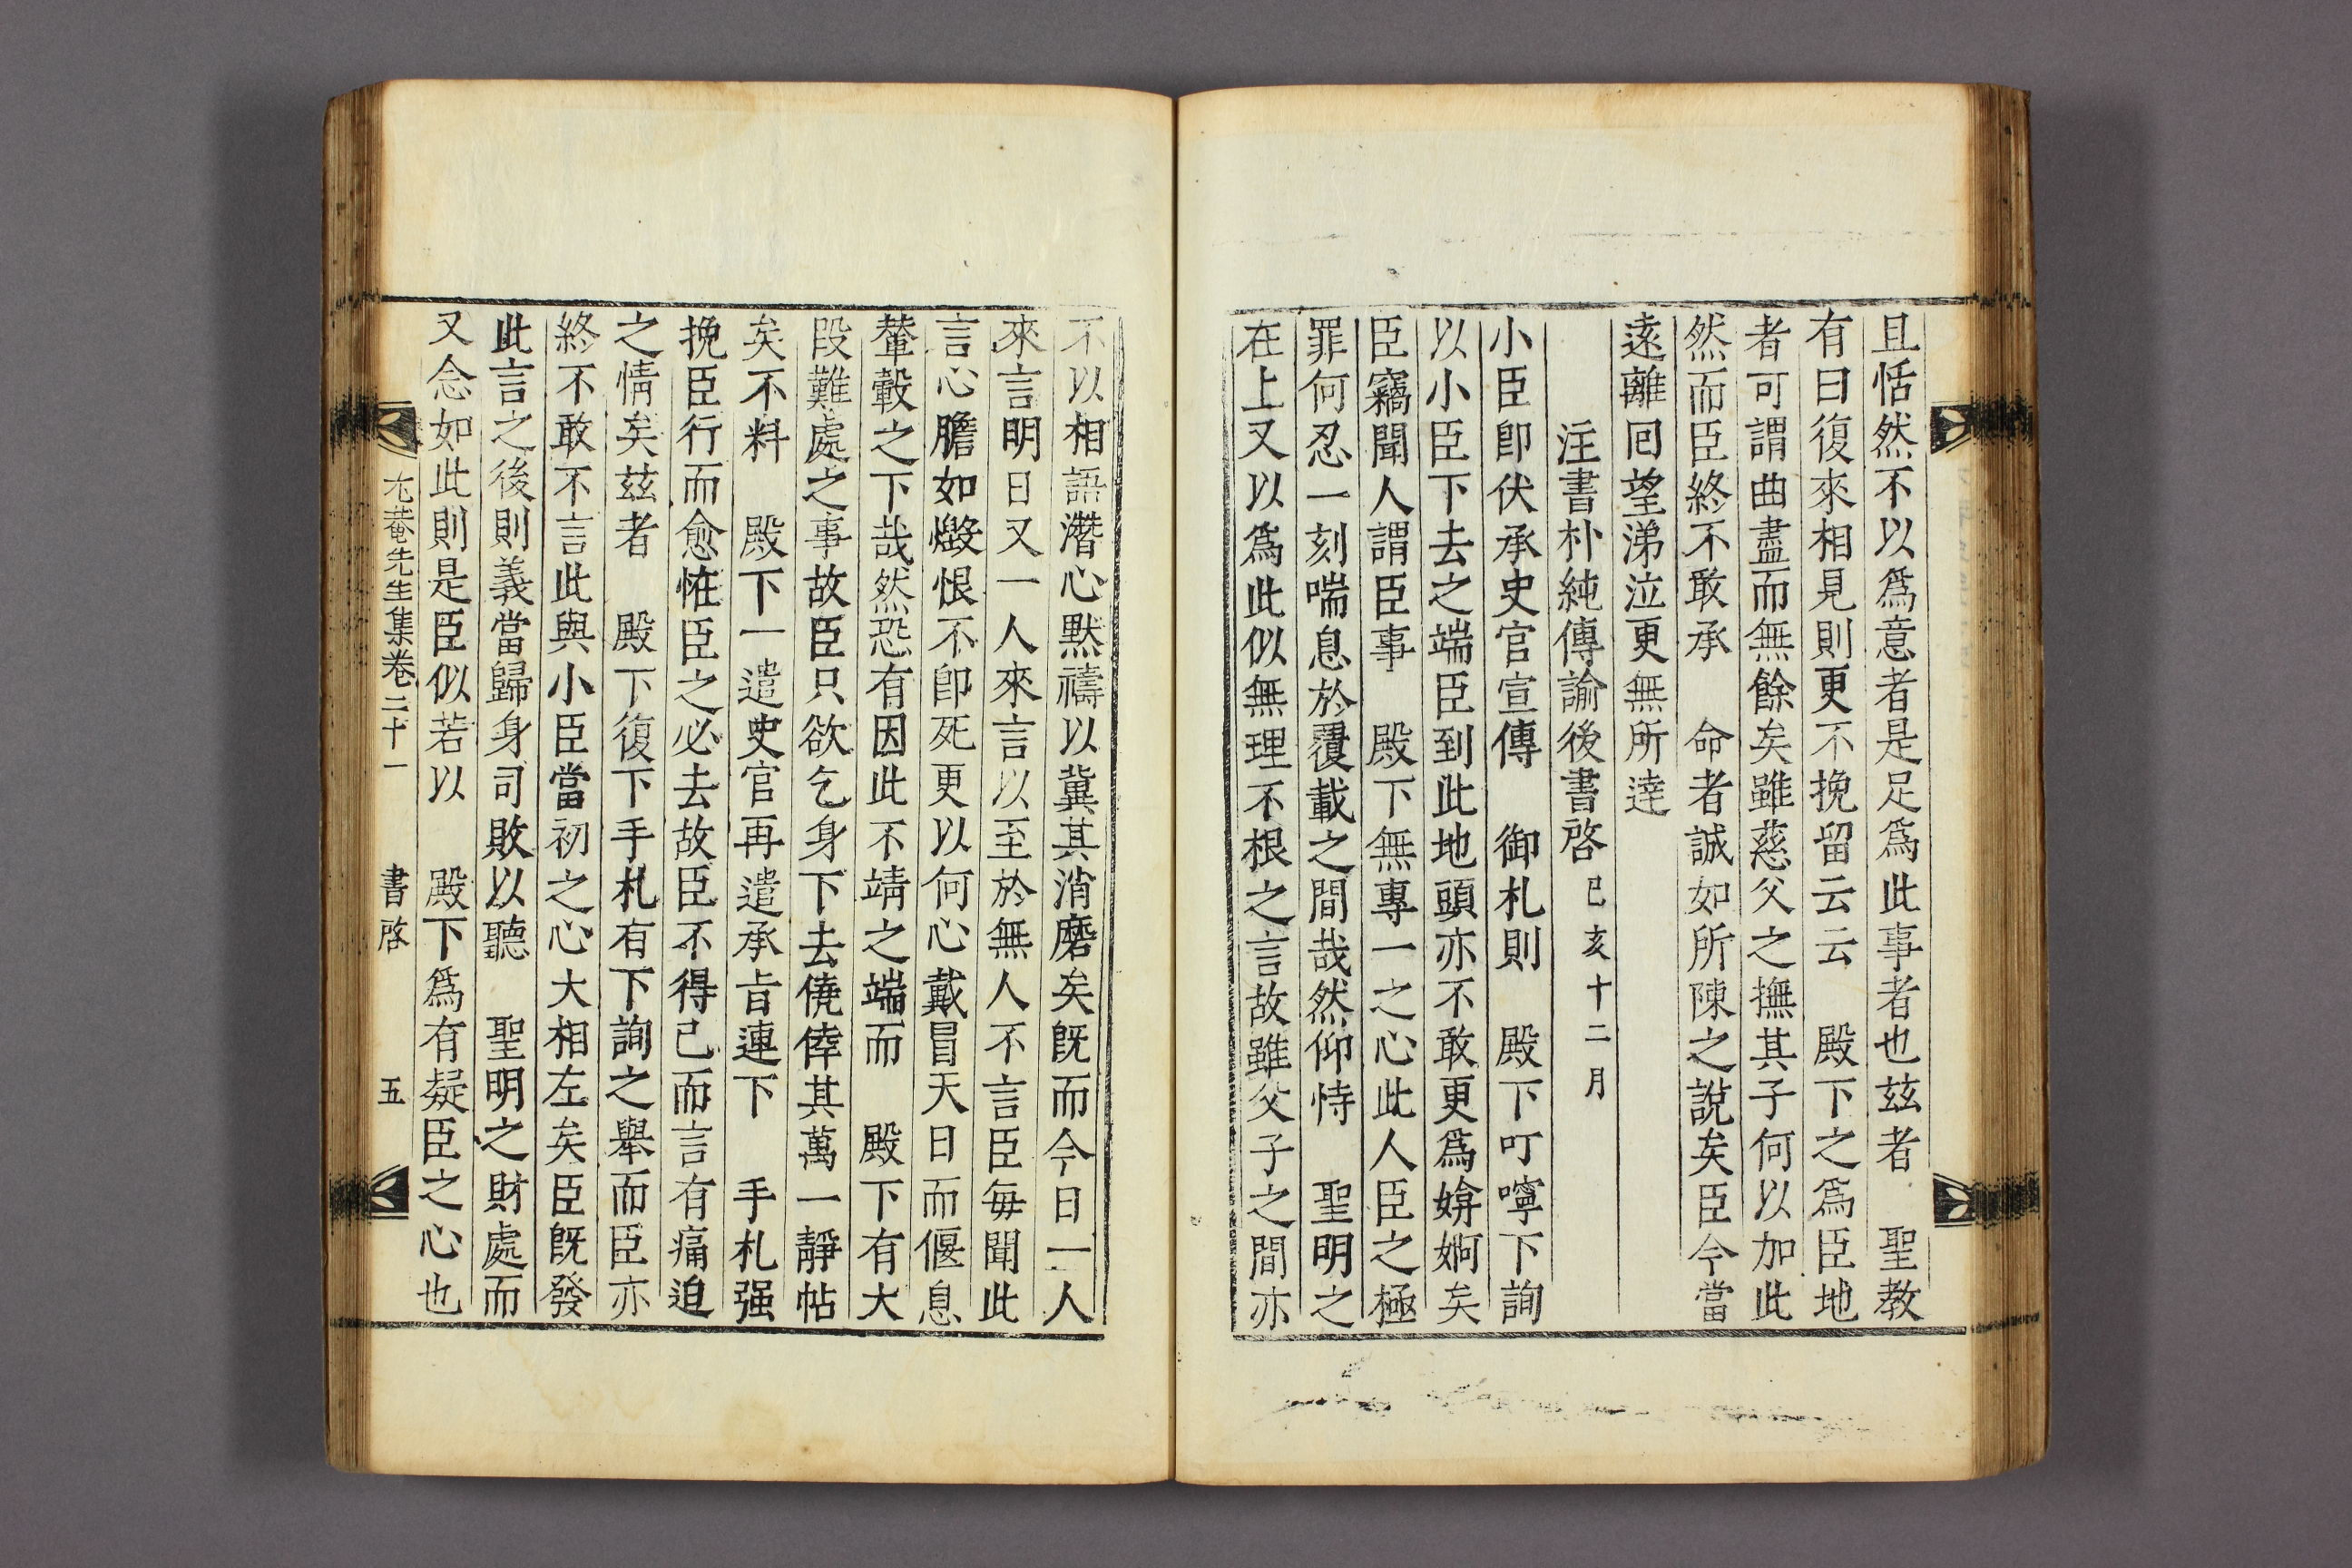 且恬然不以爲意者是足爲此事者也玆者 聖教
有曰復來相見則更不挽留云云 殿下之爲臣地
者可謂曲盡而無餘矣雖慈父之撫其子何以加此
然而臣終不敢承 命者誠如所陳之說矣臣今當
遠離回望涕泣更無所達
注書朴純傳諭後書啓 己亥十二月
小臣卽伏承史官宣傳 御札則 殿下叮嚀下詢
以小臣下去之端臣到此地頭亦不敢更爲媕婀矣
臣竊聞人謂臣事 殿下無專一之心此人臣之極
罪何忍一刻喘息於覆載之間哉然仰恃 聖明之
在上又以爲此似無理不根之言故雖父子之間亦
不以相語潛心默禱以冀其消磨矣旣而今日一人
來言明日又一人來言以至於無人不言臣每聞此
言心膽如燬恨不卽死更以何心戴冒天日而偃息
輦轂之下哉然恐有因此不靖之端而 殿下有大
段難處之事故臣只欲乞身下去僥倖其萬一靜帖
矣不料 殿下一遣史官再遣承旨連下 手札强
挽臣行而愈恠臣之必去故臣不得已而言有痛迫
之情矣玆者 殿下復下手札有下詢之舉而臣亦
終不敢不言此與小臣當初之心大相左矣臣旣發
此言之後則義當歸身司敗以聽 聖明之財處而
又念如此則是臣似若以 殿下爲有疑臣之心也
尤菴先生集卷二十一 書啓 五